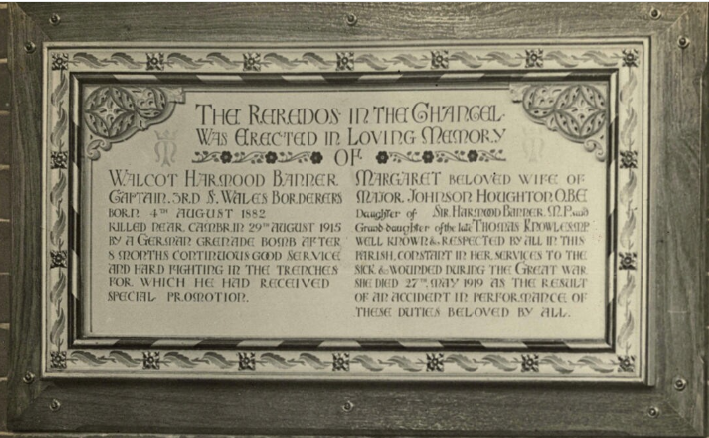 THE REREDOS IN THE CHANCEL
WAS ERECTED IN LOVING MEMORY
OF
WALCOT HARMOOD BANNER
CAPTAIN. 3RD S. WALES BORDERERS
BORN 4TH AUGUST 1882
KILLED NEAR CAMBRIN 29TH AUGUST 1915
BY A GERMAN GRENADE BOMB AFTER
8 MONTHS CONTINUOUS GOOD SERVICE
AND HARD FIGHTING IN THE TRENCHES
FOR WHICH HE HAD RECEIVED
SPECIAL PROMOTION.
MARGARET BELOVED WIFE OF
MAJOR JOHNSON HOUGHTON O.B.E
Daughter of SIR HARMOOD BANNER. M.P. and
Grand-daughter of the late THOMAS KNOWLES M.P
WELL KNOWN & RESPECTED BY ALL IN THIS
PARISH, CONSTANT IN HER SERVICES TO THE
SICK & WOUNDED DURING THE GREAT WAR
SHE DIED 27TH MAY 1919 AS THE RESULT
OF AN ACCIDENT IN PERFORMANCE OF
THESE DUTIES BELOVED BY ALL.